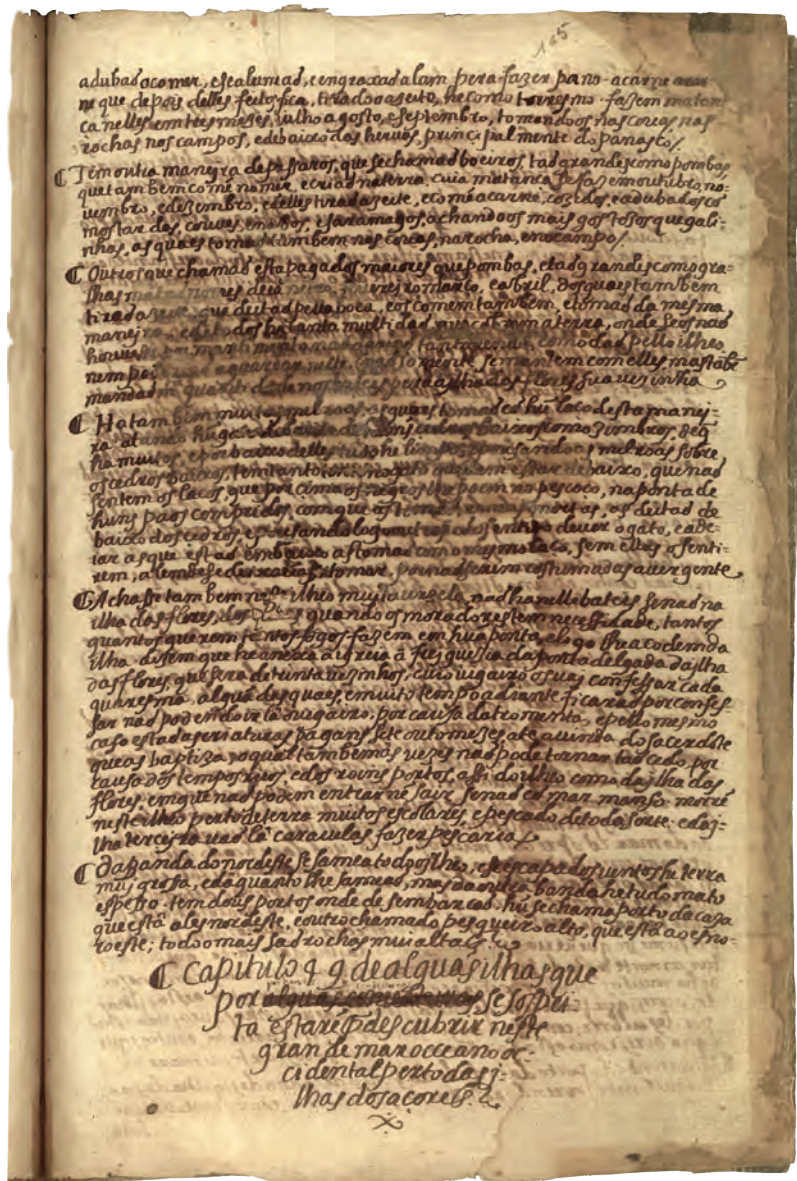 165
adubad o comer, e se alumiad, e engraxad a lam pera fazer pano. a carne
ne que depois delles feitos fica, tirado o aseito, he como torresmo. fazem matan
ça nelles em tres meses, iulho agosto, e septembro, tomando os nas couas nas
rochas nos campos, e debaixo das heruas, principalmente do panasco.
¶ Tem outra maneira de passaros, que se chamad boeiros, tad grandes como pombas,
que tambem comé no mar, e criad na terra. cuia matança se faz em outubro, no=
uembro, e dezembro, e delles tirad azeite, e comé a carne, cozidos, e adubados có
mostardas, couues, e nabos, e saramagos, achando os mais gostozos que gali=
nhas, as quaes tomad tambem nas couas, na rocha, e no campo.
¶ Outros que chamad estapagados maiores que pombas, e tad grandes como gra=
lhas matad no mes de março, e abril, dos quaes tambem
tirad azeite, que deitad pella boca, e os comem tambem, e tomad da mesma
maneira, e de todos ha tanta multidad que cobrem a terra, onde se os nad
houuesse com mantimento nad como dad pello ilheo
nem e nad somente se mantem com elles mas també
mandad quantidade pera a ilha das flores sua uezinha
¶ Ha tambem muitos milroas, as quaes tomad có hú laço desta manei=
ra atando baixos como zimbros, de q
ha muitos, e por baixo delles tudo he limpo, e pousando as milroas sobre
os cedros baixos, tem tanto no gato debaixo, que nad
sentem os laços que por cima os negros lhe poem no pescoço, na ponta de
huns paos compridos, com que as mortas, as deitad de
baixo dos cedros, e pousando logo outras co sentido de uer o gato, e a de=
iar as que estad em baixo as tomad com o mesmo laço, sem ellas o senti=
rem, alem de se deixarem tomar, por nad serem costumadas a uer gente.
¶ Achasse tambem neste ilheo muita urzela, nad ha nelle bateis senad na
ilha das flores, dos quando os moradores tem necessidade, tantos
quantos querem tantos fogos fazem em húa ponta, e logo lhe acodem da
ilha. disem que he anexa a igreia á freiguesia da ponta delgada da ilha
das flores, que sera de trinta uezinhos, cuio uigairo os uai confessar cada
quaresma, algúas das quaes, e muito tempo adiante ficarad por confes
sar nad podendo ir lá o uigairo, por causa da tromenta, e pello mesmo
caso estad as criaturas pagans sete outo mezes até a uinda do sacerdote
que as baptiza, o qual tambem ás uezes nad pode tornar tad cedo, por
causa dos temporaes, e dos roins portos, assi do ilheo como da ilha das
flores, em que nad podem entrar né sair senad có mar manso. morré
neste ilheo perto de terra muitos escolares, e pescado de toda sorte. e da i=
lha terceira uad lá carauelas fazer pescaria.
¶ Da banda do nordeste se samea todo o ilheo, e escapados uentos he terra
mui grossa, e dá quanto lhe samead, mas da outra banda he tudo mato
espesso. tem dous portos onde desembarcad. hú se chama porto da caza
que está a les nordeste, e outro chamado pesqueiro alto, que está a oesno=
roeste; todo o mais sad rochas mui altas.
¶ Capitulo 49 de algúas ilhas que
por se sospei=
ta estaré p descubrir neste
grande mar occeano oc=
cidental perto das i=
lhas dos açores.